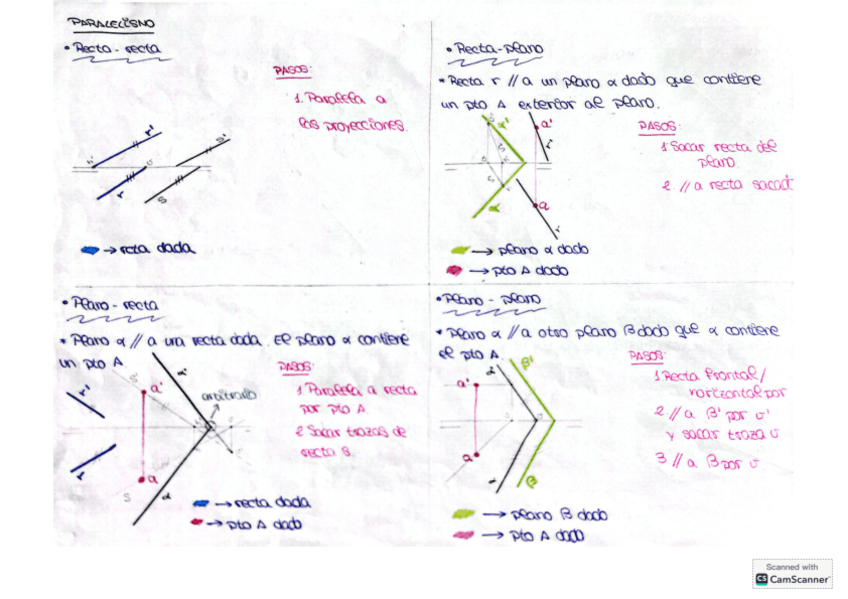 PARALELISMO
• Recta - recta
PASOS:
1. Paralela a
las proyecciones.
r'
s'
r
s
→ recta dada
• Recta-plano
* Recta r // a un plano α dado que contiene
un pto A exterior al plano.
PASOS:
1 Sacar recta del
plano.
2 // a recta sacad
α'
a'
r'
α
a
r
→ plano α dado
→ pto A dado
• Plano - recta
* Plano α // a una recta dada. El plano α contiene
un pto A
PASOS:
1. Paralela a recta
por pto A.
2 Sacar trazas de
recta s.
α'
s'
a'
r'
arbitrario
r
a
s
α
→ recta dada
→ pto A dado
• Plano - plano
* Plano α // a otro plano β dado que α contiene
el pto A.
PASOS:
1 Recta frontal/
horizontal por
2 // a β' por v'
y sacar traza v
3 // a β por v
α'
β'
a'
a
α
β
→ plano β dado
→ pto A dado
Scanned with
CS CamScanner